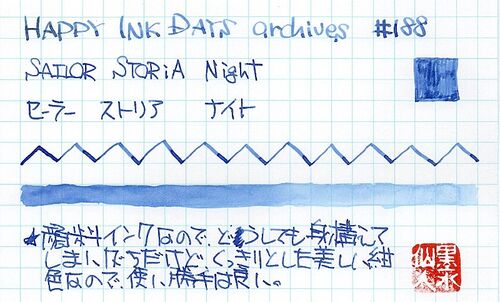 HAPPY INK DAYS archives #188
SAILOR STORiA Night
セーラー ストリア ナイト
★顔料インクなので、どうしても身構えて
しまいがちだけど、くっきりとした美しい紺
色なので、使い勝手は良い。